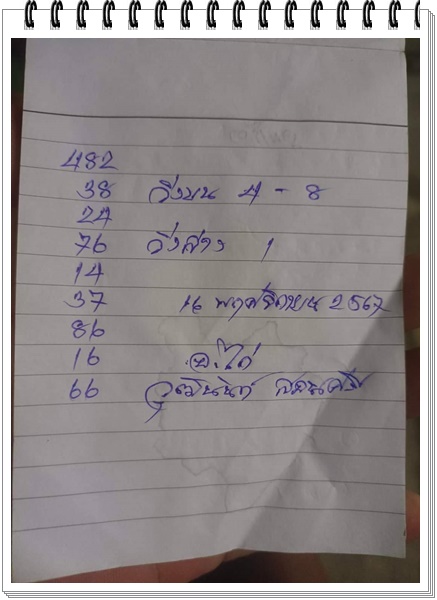 482
38 วิ่งบน 4 - 8
24
76 วิ่งล่าง 1
14
37 16 พฤศจิกายน 2567
86
16 อ.ไก่
66